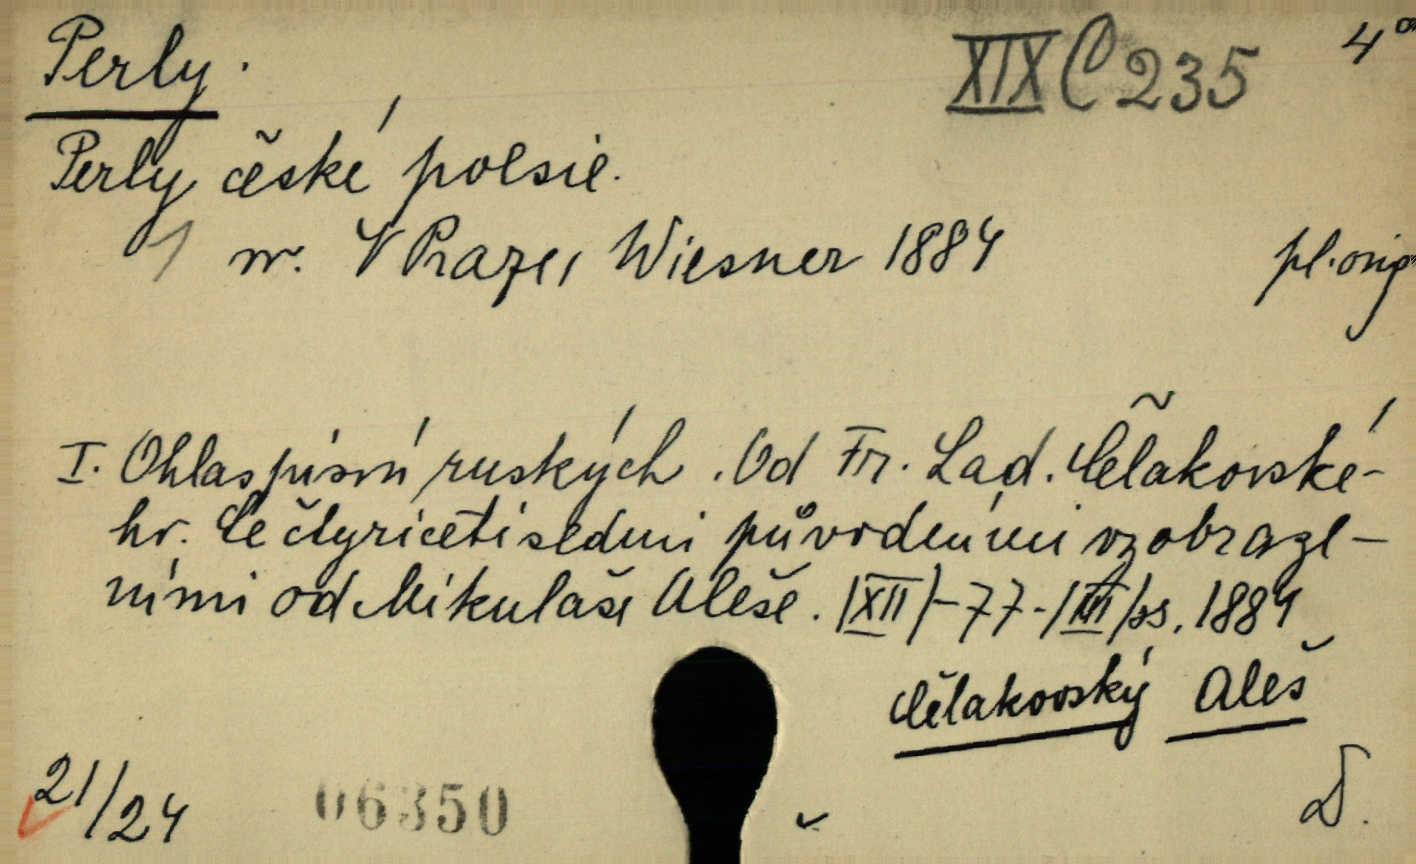 Perly. XIX C 235 4°
Perly české poesie.
1 sv. V Praze, Wiesner 1884 pl. orig
I. Ohlas písní ruských. Od Fr. Lad. Čelakovské-
ho. Se čtyriceti sedmi původními vzobraze-
ními od Mikuláše Aleše. /XII/-77-/III/ss. 1884
Čelakovský Aleš
21/24 06350 D.